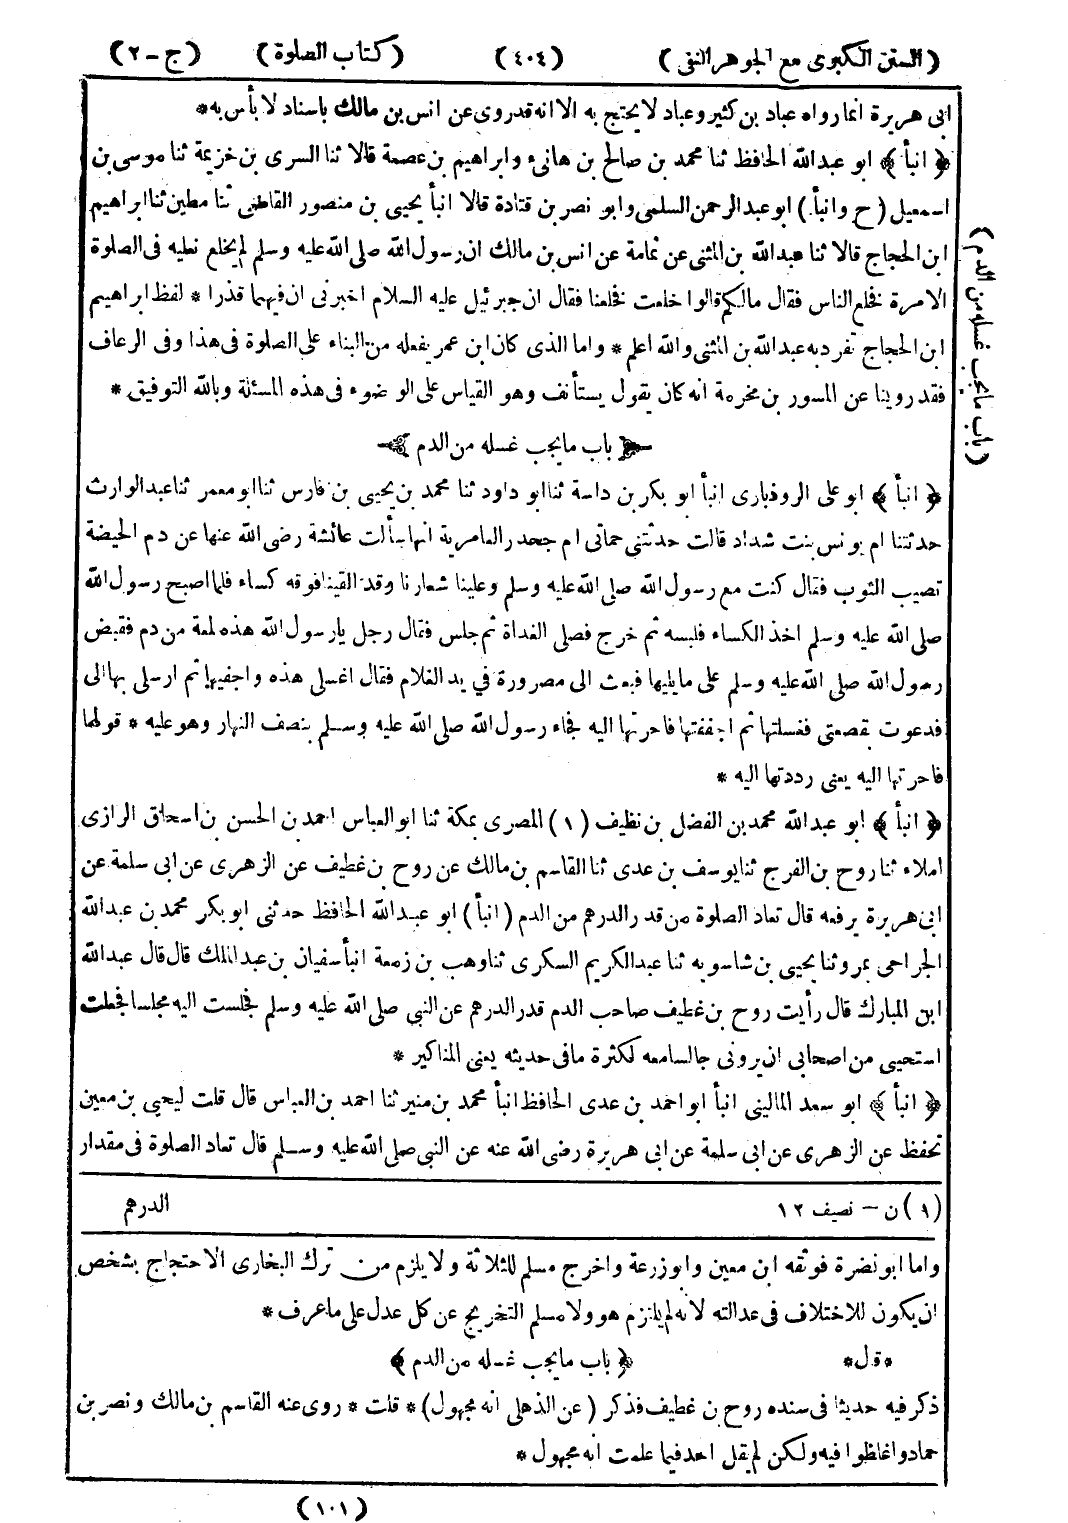 (السنن الكبرى مع الجوهر النقى) (٤٠٤) (كتاب الصلوة) (ج - ٢)
ابى هريرة انما رواه عباد بن كثير وعباد لا يحتج به الا انه قد روى عن انس بن مالك باسناد لا بأس به *
﴿ انبأ ﴾ ابو عبد الله الحافظ ثنا محمد بن صالح بن هانىء وابراهيم بن عصمة قالا ثنا السرى بن خزيمة ثنا موسى بن
اسمعيل (ح وانبأ) ابو عبد الرحمن السلمى وابو نصر بن قتادة قالا انبأ يحيى بن منصور القاضى ثنا مطين ثنا ابراهيم
ابن الحجاج قالا ثنا عبد الله بن المثنى عن ثمامة عن انس بن مالك ان رسول الله صلى الله عليه وسلم لم يخلع نعليه فى الصلوة
الامرة فخلع الناس فقال مالكم قالوا خلعت فخلعنا فقال ان جبرئيل عليه السلام اخبرنى ان فيهما قذرا * لفظ ابراهيم
ابن الحجاج تفرد به عبد الله بن المثنى والله اعلم * واما الذى كان ابن عمر يفعله من البناء على الصلوة فى هذا وفى الرعاف
فقد روينا عن المسور بن مخرمة انه كان يقول يستأنف وهو القياس على الوضوء فى هذه المسئلة وبالله التوفيق *
باب ما يجب غسله من الدم
﴿ انبأ ﴾ ابو على الروذبارى انبأ ابو بكر بن داسة ثنا ابو داود ثنا محمد بن يحيى بن فارس ثنا ابو معمر ثنا عبد الوارث
حدثتنا ام يونس بنت شداد قالت حدثتنى حماتى ام جحدر العامرية انها سألت عائشة رضى الله عنها عن دم الحيضة
تصيب الثوب فقال كنت مع رسول الله صلى الله عليه وسلم وعلينا شعارنا وقد القينا فوقه كساء فلما اصبح رسول الله
صلى الله عليه وسلم اخذ الكساء فلبسه ثم خرج فصلى الغداة ثم جلس فقال رجل يا رسول الله هذه لمعة من دم فقبض
رسول الله صلى الله عليه وسلم على ما يليها فبعث الى مصرورة في يد الغلام فقال اغسلى هذه واجفيها ثم ارسلى بها الى
فدعوت بقصعتى فغسلتها ثم اجففتها فاحرتها اليه فجاء رسول الله صلى الله عليه وسلم بنصف النهار وهو عليه * قولها
فاحرتها اليه يعنى رددتها اليه *
﴿ انبأ ﴾ ابو عبد الله محمد بن الفضل بن نظيف (١) المصرى بمكة ثنا ابو العباس احمد بن الحسن بن اسحاق الرازى
املاء ثنا روح بن الفرج ثنا يوسف بن عدى ثنا القاسم بن مالك عن روح بن غطيف عن الزهرى عن ابى سلمة عن
ابى هريرة يرفعه قال تعاد الصلوة من قدر الدرهم من الدم (انبأ) ابو عبد الله الحافظ حدثنى ابو بكر محمد بن عبد الله
الجراحى بمرو ثنا يحيى بن شاسويه ثنا عبد الكريم السكرى ثنا وهب بن زمعة انبأ سفيان بن عبد الملك قال قال عبد الله
ابن المبارك قال رأيت روح بن غطيف صاحب الدم قدر الدرهم عن النبي صلى الله عليه وسلم فجلست اليه مجلسا فجعلت
استحيى من اصحابى ان يرونى جالسا معه لكثرة ما فى حديثه يعنى المناكير *
﴿ انبأ ﴾ ابو سعد المالينى انبأ ابو احمد بن عدى الحافظ انبأ محمد بن منير ثنا احمد بن العباس قال قلت ليحيى بن معين
تحفظ عن الزهرى عن ابى سلمة عن ابى هريرة رضى الله عنه عن النبى صلى الله عليه وسلم قال تعاد الصلوة فى مقدار
الدرهم
(١) ن - نصيف ١٢
واما ابو نضرة فوثقه ابن معين وابو زرعة واخرج مسلم للثلاثة ولا يلزم من ترك البخارى الاحتجاج بشخص
ان يكون للاختلاف فى عدالته لانه لم يلتزم هو ولا مسلم التخريج عن كل عدل على ما عرف *
*قال* ﴿ باب ما يجب غسله من الدم ﴾
ذكر فيه حديثا فى سنده روح بن غطيف فذكر (عن الذهلى انه مجهول) * قلت * روى عنه القاسم بن مالك ونصر بن
حماد واغلظوا فيه ولكن لم يقل احد فيما علمت انه مجهول *
(١٠١)
(باب ما يجب غسله من الدم)